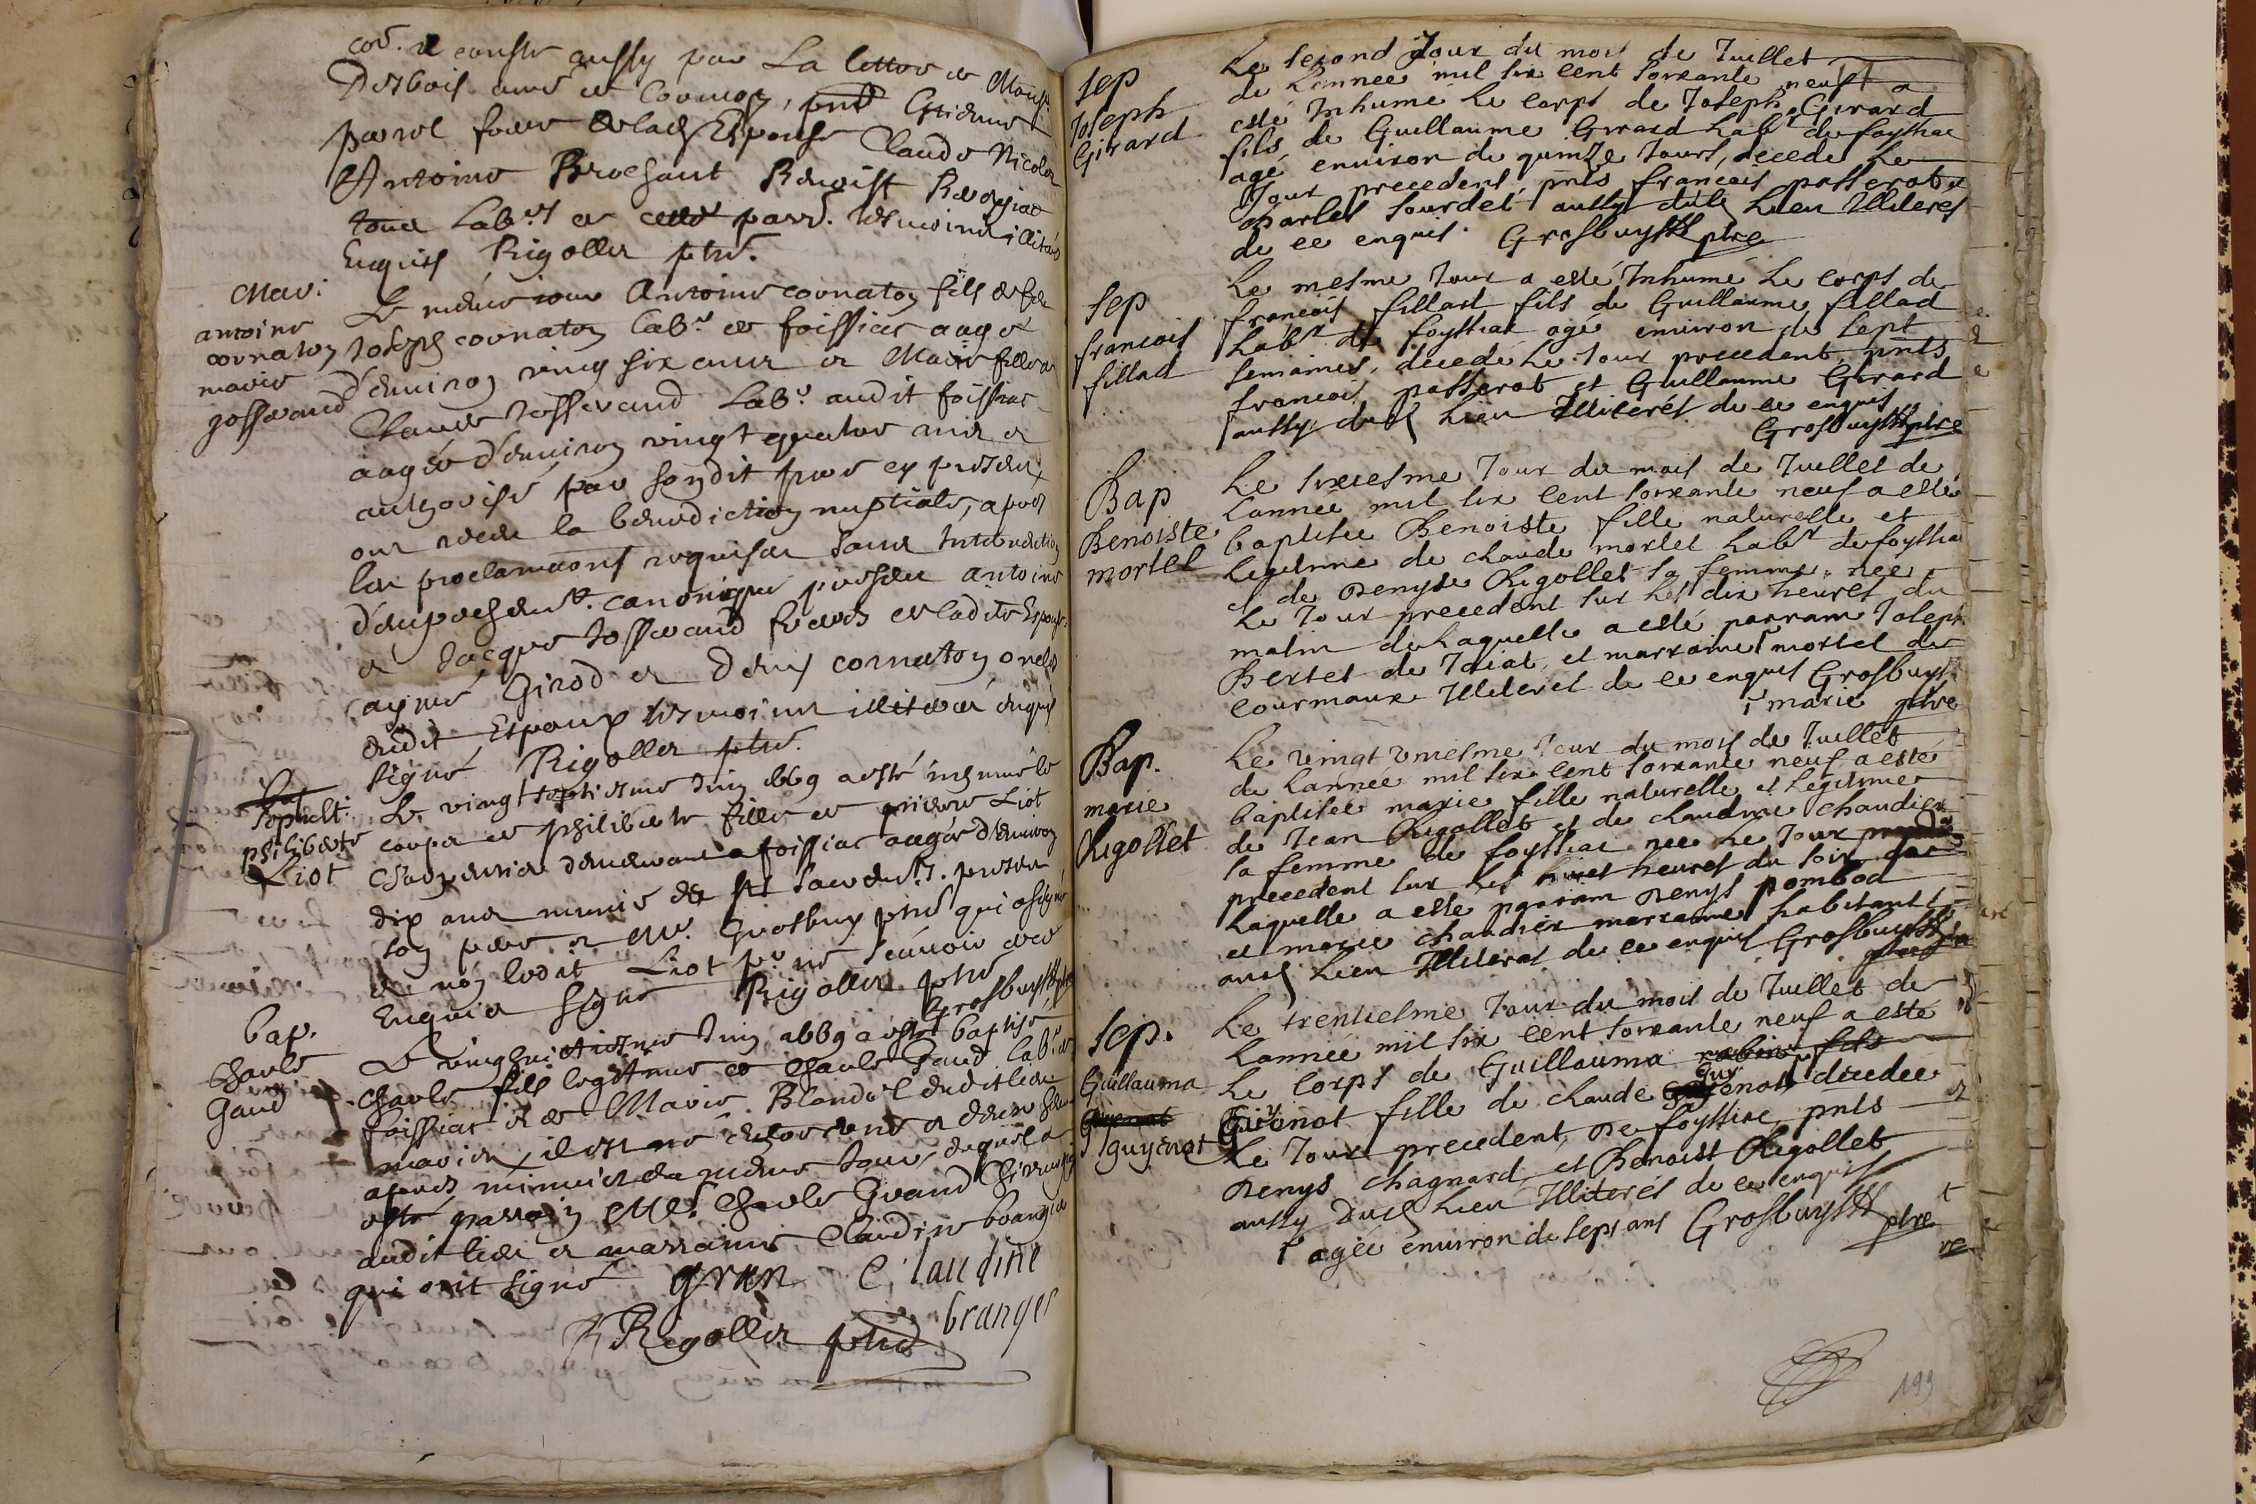 cor. et conste aussy par La lettre de Mons.
Desbois curé de Cormoz, pnts Estienne
parrel frere de lad. Espouse Claude Nicolas
Antoine Brochant Benoist
tous Lab.rs de cette parr. tesmoins illiterés
Enquis Rigollet ptre.
Mar:
antoine
cornaton
marie
josserand
Le mesme jour Antoine cornaton fils de feu
Joseph cornaton lab.r de foissiac aagé
d'environ vingt six ans et Marie fille de
Claude Josserand Lab.r audit foissiac
aagée d'environ vingt quatre ans et
authorisée par sondit pere cy present
ont receu la benediction nuptiale, apres
les proclamaons requises sans
d'empeschem.t canonique presens antoine
et Jacque Josserand freres de ladite Espouse
aymé Girod et Denis cornaton oncle
dudit Espoux tesmoins illiterés enquis
signé Rigollet ptre.
Sepult:
philiberte
Liot
Le vingt septiesme Juin 1669 a esté inhumé le
corps de philiberte fille de Liot
charpentier demeurant a foissiac aagée d'environ
dix ans munie des sts sacrem.ts. presens
son pere et Mr. Grosbuys ptre qui a signé
et non ledit Liot p.r ne scavoir de ce
Enquis signé Rigollet ptre
Grosbuys ptre
bap.
Charle
Gaud
Le vingt huictiesme Juin 1669 a esté baptisé
Charle fils legitime de Charle Gaud lab.r de
foissiac et de Marie Blandel dudit lieu
mariés, il est né
apres minuict du mesme jour, duquel a
esté parrain Me. Charle Grand Chirurgien
audit lieu et marraine Claudine brangier
qui ont signé gran Claudine
branger
Rigollet ptre
Sep
Joseph
Girard
Le second Jour du mois de Juillet
de Lannee mil six cent soixante neuf a
esté Inhumé Le corps de Joseph Girard
fils de Guillaume Girard Lab.r de foyssiac
agé environ de quinze Jours, decede Le
Jour precedent, pnts francois passerat et
Charles Sourdet aussy dud. Lieu Illiterés
de ce enquis. Grosbuys ptre
Sep
francois
fillad
Le mesme Jour a esté Inhumé Le corps de
francois fillad fils de Guillaume fillad
Lab.r de foyssiac agé environ de sept
semaines, decedé Le Jour precedent, pnts
francois passerat et Guillaume Girard
aussy dud. Lieu Illiterés de ce enquis
Grosbuys ptre
Bap
Benoiste
mortel
Le sixiesme Jour du mois de Juillet de
Lannee mil six cent soixante neuf a esté
baptisee Benoiste fille naturelle et
Legitime de claude mortel Lab.r de foyssia
et de Denyse Rigollet sa femme, nee
Le Jour precedent sur Les dix heures du
matin de Laquelle a esté parrain Joseph
Bertet de Jaiat, et marraine mortel de
courmaux Illiterés de ce enquis Grosbuys
marie ptre
Bap.
marie
Rigollet
Le vingt uniesme Jour du mois de Juillet
de Lannee mil six cent soixante neuf a esté
baptisée marie fille naturelle et Legitime
de Jean Rigollet et de claudine chaudier
sa femme de foyssiac nee Le Jour
precedent sur Les heures du soir de
Laquelle a este parrain Denys pombod
et marie chaudier marraine habitants
aud. Lieu Illiterés de ce enquis Grosbuys
ptre
Sep.
Guillauma
guyenot
Le trentiesme Jour du mois de Juillet de
Lannée mil six cent soixante neuf a este
Le corps de Guillauma
Guyenot fille de claude guyenot decedee
Le Jour precedent, de foyssiac, pnts
Denys chagnard et Benoist Rigollet
aussy Dud. Lieu Illiterés de ce enquis
agée environ de sept ans Grosbuys ptre
199